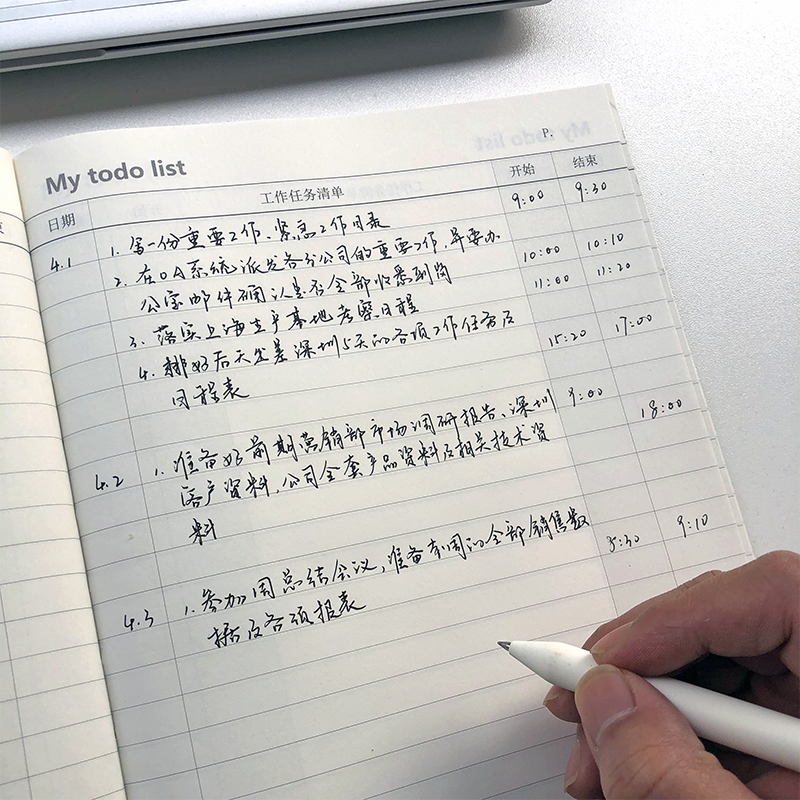 My todo list
P.
日期 工作任务清单 开始 结束
4.1 1. 写一份重要工作、紧急工作目录 9:00 9:30
2. 在OA系统派发各分公司的重要工作,并要办 10:00 10:10
公室邮件确认是否全部收悉到岗
3. 落实上海生产基地考察日程 11:00 11:20
4. 排好后天出差深圳5天的各项工作任务及 15:20 17:00
日程表
4.2 1. 准备好前期营销部市场调研报告、深圳 9:00 18:00
客户资料,公司全套产品资料及相关技术资
料
4.3 1. 参加周总结会议,准备本周的全部销售数 8:30 9:10
据及各项报表